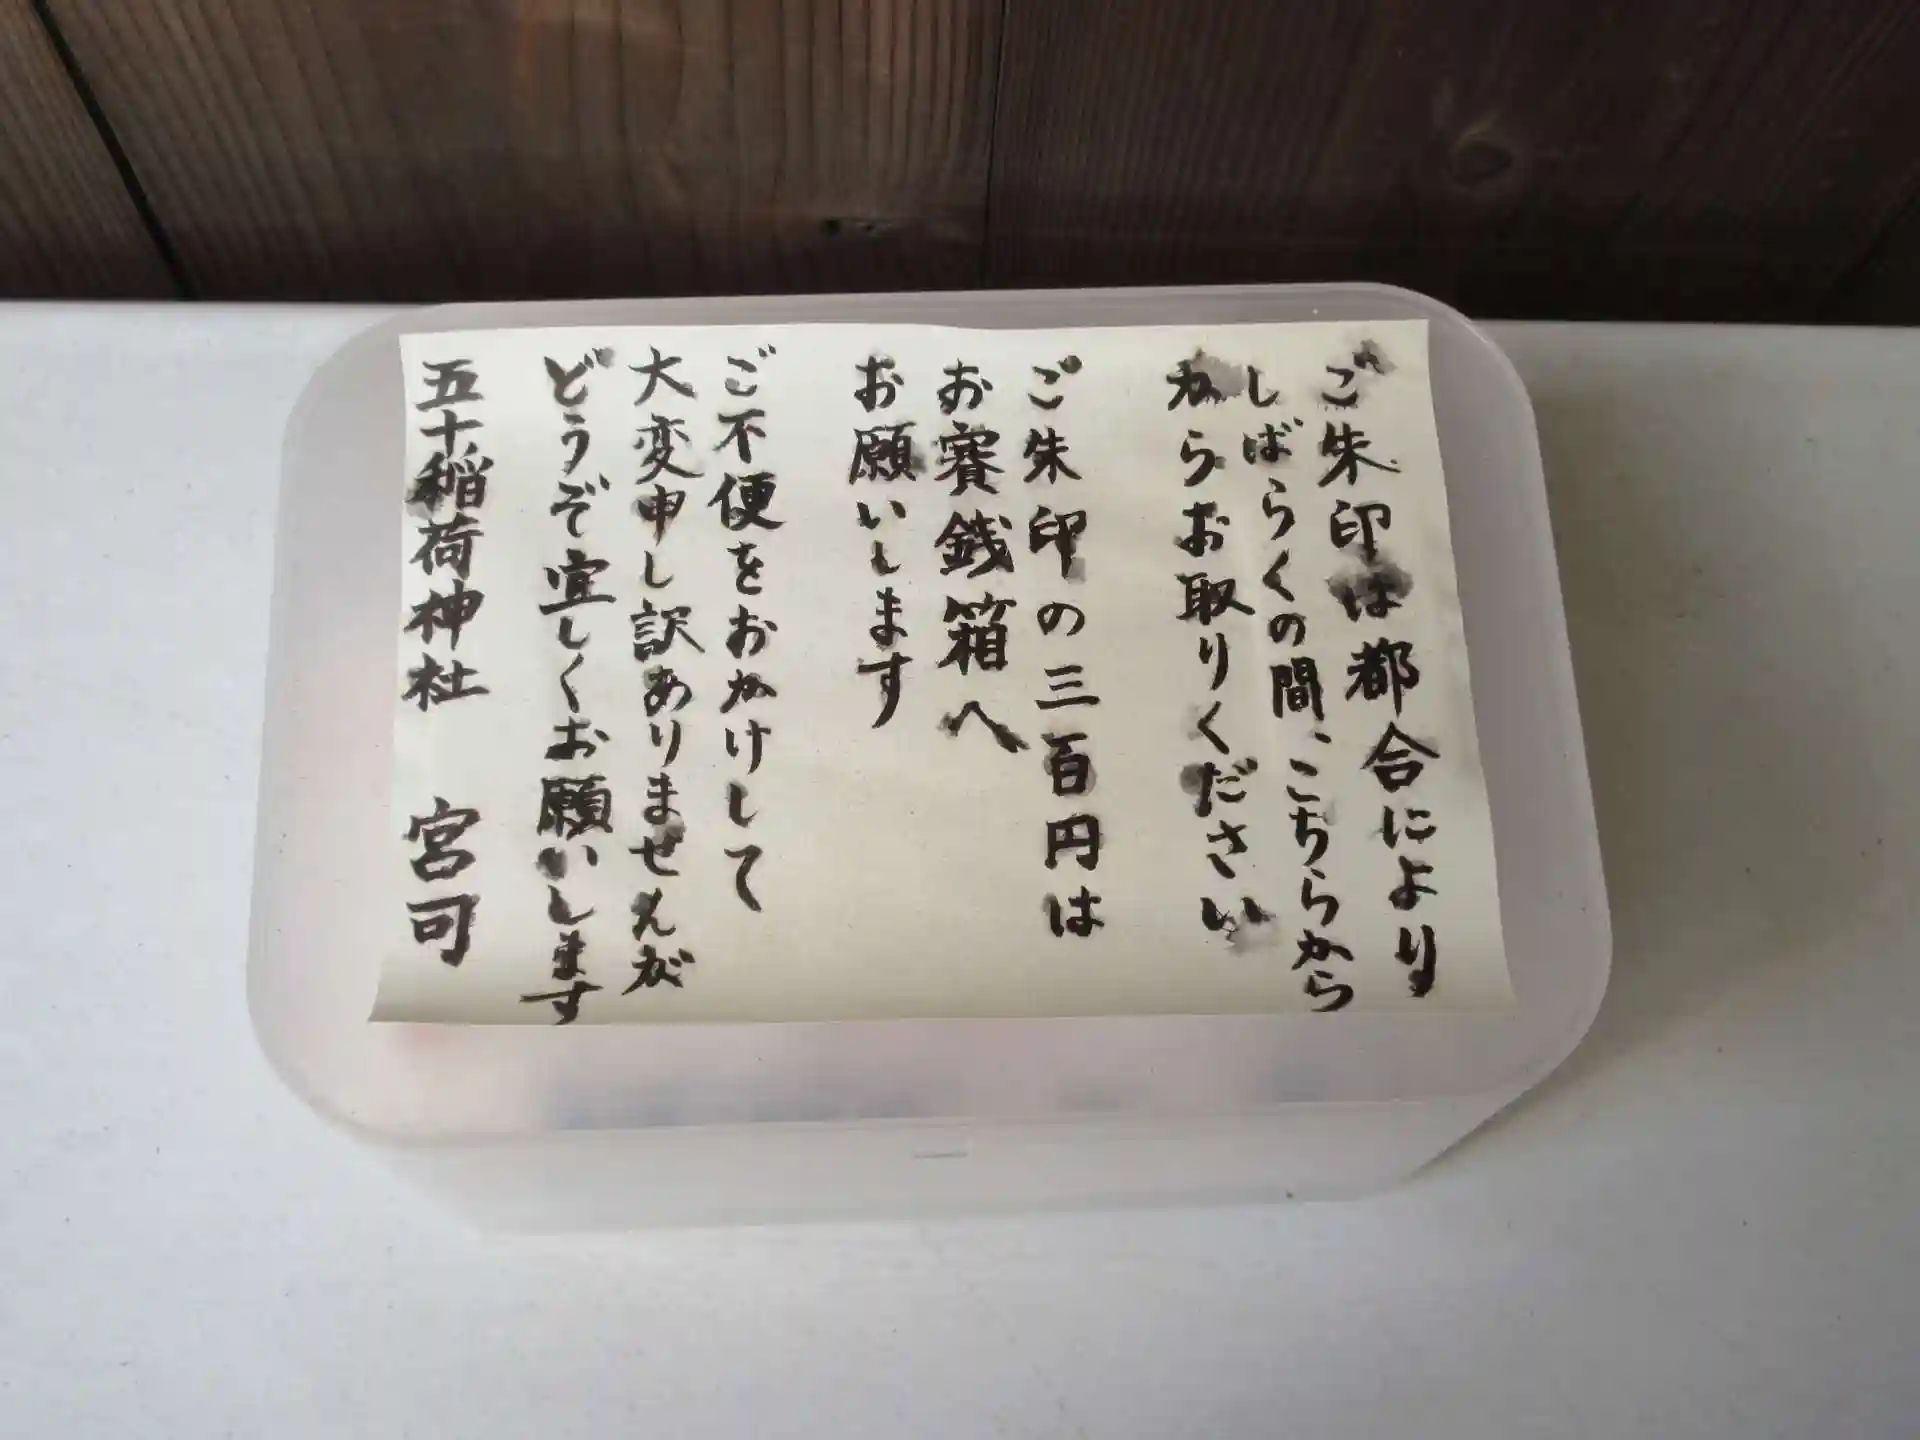 ご朱印は都合により
しばらくの間、こちらから
からお取りください
ご朱印の三百円は
お賽銭箱へ
お願いします
ご不便をおかけして
大変申し訳ありませんが
どうぞ宜しくお願いします
五十稲荷神社 宮司